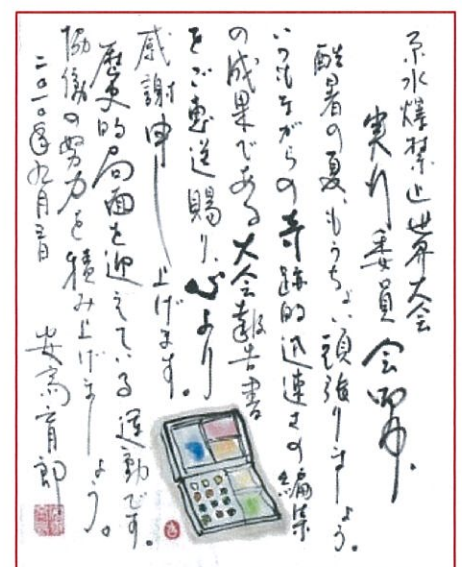 原水爆禁止世界大会
実行委員会御中、
酷暑の夏、もうちょい頑張りましょう。
いつもながらの奇跡的迅速さの編集
の成果である大会報告書
をご恵送賜り、心より
感謝申し上げます。
歴史的局面を迎えている運動です。
協働の努力を積み上げましょう。
二〇一〇年九月三日
安斎育郎